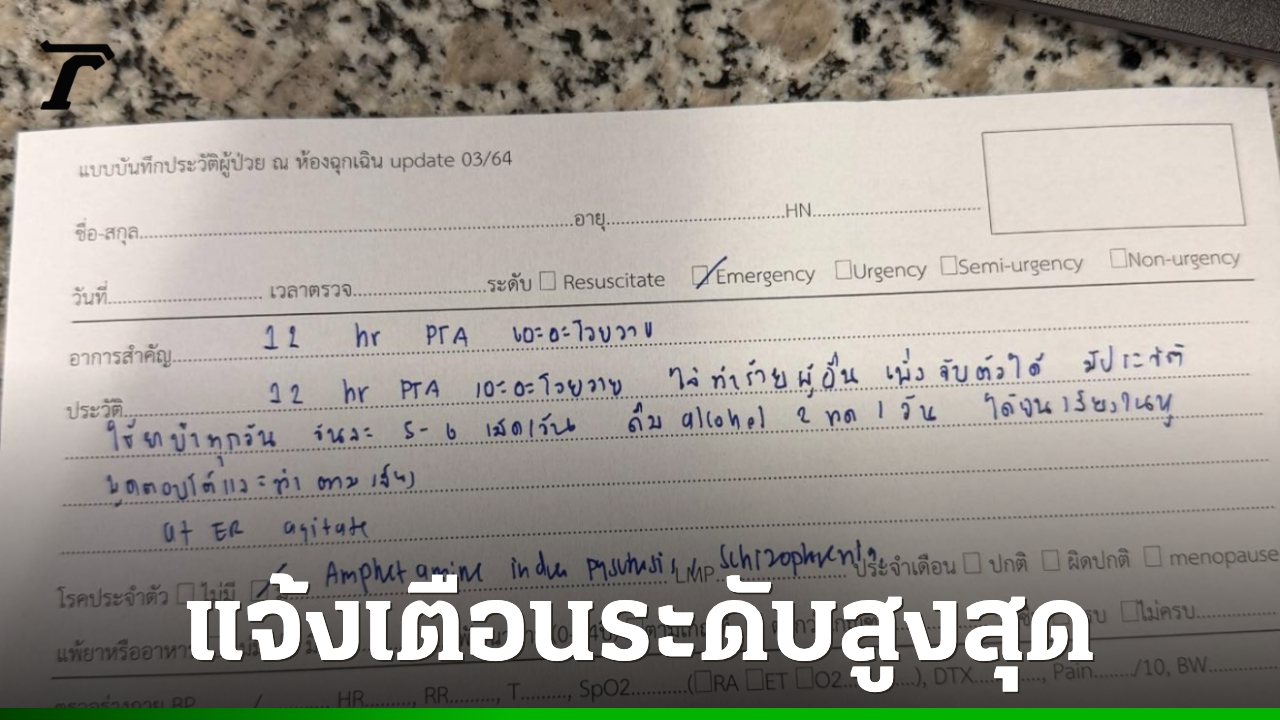 แบบบันทึกประวัติผู้ป่วย ณ ห้องฉุกเฉิน update 03/64
ชื่อ-สกุล..........อายุ..........HN..........
วันที่.......... เวลาตรวจ..........ระดับ ☐ Resuscitate ☑ Emergency ☐ Urgency ☐ Semi-urgency ☐ Non-urgency
อาการสำคัญ.......... 12 hr PTA เอะอะโวยวาย
ประวัติ.......... 12 hr PTA เอะอะโวยวาย ไล่ทำร้ายผู้อื่น เพิ่งจับตัวได้ มีประวัติ
ใช้ยาบ้าทุกวัน วันละ 5-6 เม็ด/วัน ดื่ม alcohol 2 ขวด 1 วัน ได้ยินเสียงในหู
พูดตอบโต้และทำตามเสียง
at ER agitate
โรคประจำตัว ☐ ไม่มี ☑ Amphetamine indu psychosis, LMP Schizophrenia ประจำเดือน ☐ ปกติ ☐ ผิดปกติ ☐ menopause
แพ้ยาหรืออาหาร ☐ไม่ครบ..........
แจ้งเตือนระดับสูงสุด
ตรวจร่างกาย BP ....../......, HR........, RR........, T........, SpO2........(☐RA ☐ET ☐O2........), DTX........, Pain....../10, BW........